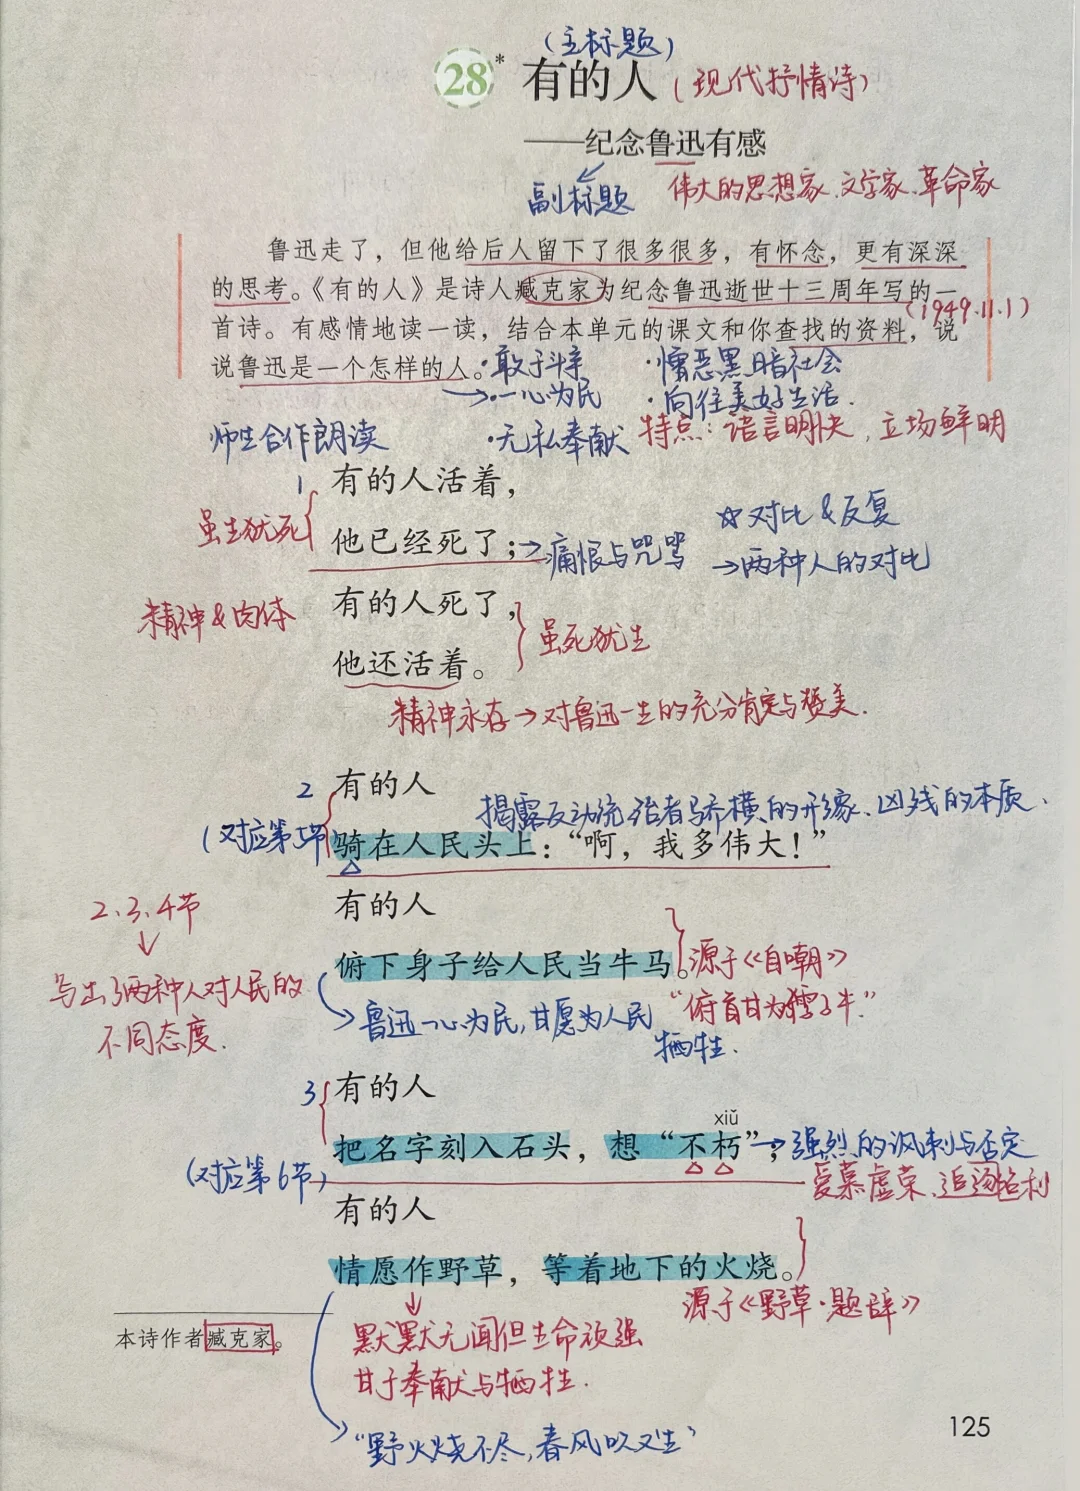 (主标题)
28* 有的人(现代抒情诗)
——纪念鲁迅有感
副标题 伟大的思想家、文学家、革命家
鲁迅走了，但他给后人留下了很多很多，有怀念，更有深深
的思考。《有的人》是诗人臧克家为纪念鲁迅逝世十三周年写的一
(1949.11.1)
首诗。有感情地读一读，结合本单元的课文和你查找的资料，说
说鲁迅是一个怎样的人。·敢于斗争 ·憎恶黑暗社会
→·一心为民 ·向往美好生活.
师生合作朗读 ·无私奉献 特点：语言明快，立场鲜明
1 有的人活着，
虽生犹死 ☆对比&反复
他已经死了；→痛恨与咒骂 →两种人的对比
精神&肉体 有的人死了，
虽死犹生
他还活着。
精神永存→对鲁迅一生的充分肯定与赞美.
2 有的人
揭露反动统治者骄横的形象、凶残的本质.
(对应第5节 骑在人民头上：“啊，我多伟大！”
2.3.4节 有的人
↓
俯下身子给人民当牛马。源于《自嘲》
写出了两种人对人民的 “俯首甘为孺子牛”
不同态度. →鲁迅一心为民,甘愿为人民
牺牲.
3 有的人
xiǔ
把名字刻入石头，想“不朽”；→强烈的讽刺与否定
(对应第6节) 爱慕虚荣、追逐名利
有的人
情愿作野草，等着地下的火烧。
源于《野草·题辞》
本诗作者臧克家。 默默无闻但生命顽强
甘于奉献与牺牲.
“野火烧不尽,春风吹又生”
125